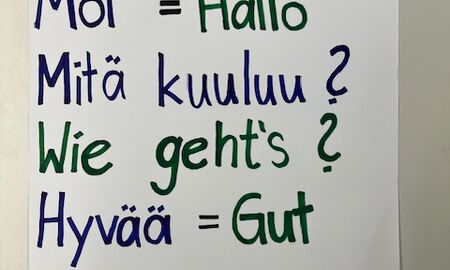 Moi = Hallo
Mitä kuuluu?
Wie geht's?
Hyvää = Gut